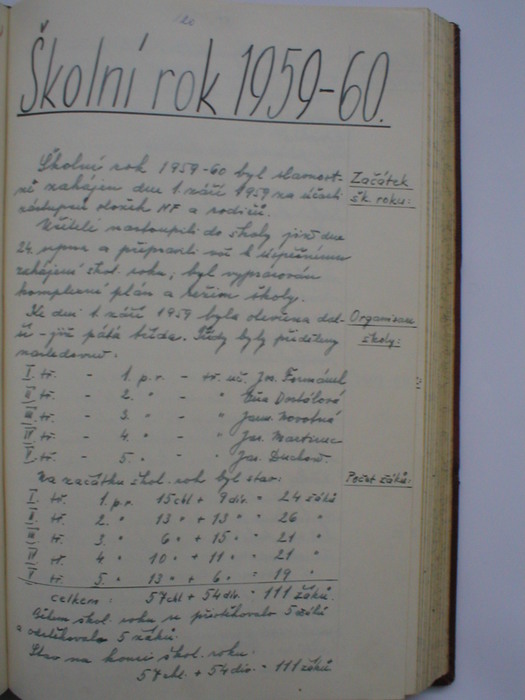 Školní rok 1959-60.
Školní rok 1959-60 byl slavnost-
ně zahájen dne 1. září 1959 za účasti
zástupců složek NF a rodičů.
Začátek
šk. roku:
Učitelé nastoupili do školy již dne
24. srpna a připravili vše k úspěšnému
zahájení škol. roku, byl vypracován
komplexní plán a režim školy.
Ke dni 1. září 1959 byla otevřena dal-
ší - již pátá třída. Třídy byly přiděleny
následovně.
Organisace
školy:
I. tř. - 1. p.r. - tř. uč. Jos. Formánek
II. tř. - 2. " - " Eva Dostálová
III. tř. - 3. " - " Jarm. Novotná
IV. tř. - 4. " - " Jar. Martinec
V. tř. - 5. " - " Jar. Duchoň.
Na začátku škol. roku byl stav:
Počet žáků:
I. tř. 1. p.r. 15 chl + 9 div. = 24 žáků
II. tř. 2. " 13 " + 13 " = 26 "
III. tř. 3. " 6 " + 15 " = 21 "
IV. tř. 4. " 10 " + 11 " = 21 "
V. tř. 5. " 13 " + 6 " = 19 "
celkem: 57 chl + 54 div. = 111 žáků.
Během škol. roku se přistěhovalo 5 žáků
a odstěhovalo 5 žáků.
Stav na konci škol. roku:
57 chl. + 54 div. = 111 žáků